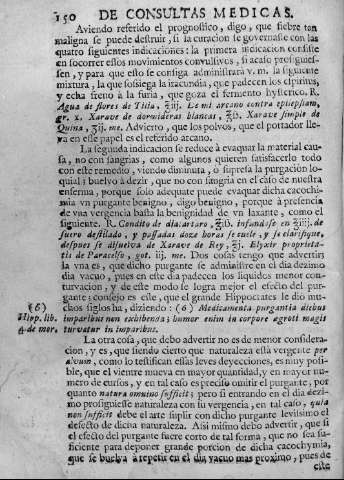 150 DE CONSULTAS MEDICAS.
Aviendo referido el prognostico, digo, que fiebre tan
maligna se puede destruir, si la curacion se governasse con las
quatro siguientes indicaciones: la primera indicacion consiste
en socorrer estos movimientos convulsivos, si acaso prosiguies-
sen, y para que esto se consiga administrarà v. m. la siguiente
mixtura, la que sossiega la iracundia, que padecen los espiritus,
y echa freno à la furia, que goza el fermento hysterico. R.
Agua de flores de Tilia, ℥iij. De mi arcano contra epilepsiam,
gr. x. Xarave de dormideras blancas, ℥ß. Xarave simple de
Quina, ʒij. me. Advierto, que los polvos, que el portador lle-
va en esse papel es el referido arcano.
La segunda indicacion se reduce à evaquar la material cau-
sa, no con sangrias, como algunos quieren satisfacerlo todo
con este remedio, viendo diminuta, ò supressa la purgacion lo-
quial; buelvo à dezir, que no con sangria en el caso de nuestra
enferma, porque solo adequate puede evaquar dicha cacochi-
mia vn purgante benigno, digo benigno, porque à presencia
de vna vergencia basta la benignidad de vn laxante, como el
siguiente. R. Condito de diacartaro, ℥ß. infundase en ℥iiij. de
suero destilado, y passadas doze horas se cuele, y se clarifique,
despues se dissuelva de Xarave de Rey, ℥j. Elyxir proprieta-
tis de Paracelso, got. iij. me. Dos cosas tengo que advertir
la vna es, que dicho purgante se administre en el dia dezimo
dia vacuo, pues en este dia padecen los liquidos menos con-
turvacion, y de este modo se logra mejor el efecto del pur-
gante: consejo es este, que el grande Hippocrates le dio mu-
(6) chos siglos ha, diziendo: (6) Medicamenta purgantia diebus
Hipp. lib. imparibus non exhibenda; humor enim in corpore ægroti magis
4 de mor. turvatur in imparibus.
La otra cosa, que debo advertir no es de menor considera-
cion, y es, que siendo cierto que naturaleza està vergente per
alvum, como lo testifican essas leves deyecciones, es muy possi-
ble, que el vientre mueva en mayor quantidad, y en mayor nu-
mero de cursos, y en tal caso es preciso omitir el purgante, por
quanto natura omnino sufficit; pero si entrando en el dia dezi-
mo prosiguiesse naturaleza con su vergencia, en tal caso, quia
non sufficit debe el arte suplir con dicho purgante levissimo el
defecto de dicha naturaleza. Assi mismo debo advertir, que si
el efecto del purgante fuere corto de tal forma, que no sea su-
ficiente para deponer grande porcion de dicha cacochymia,
que se buelva à repetir en el dia vacuo mas proximo, pues de
este